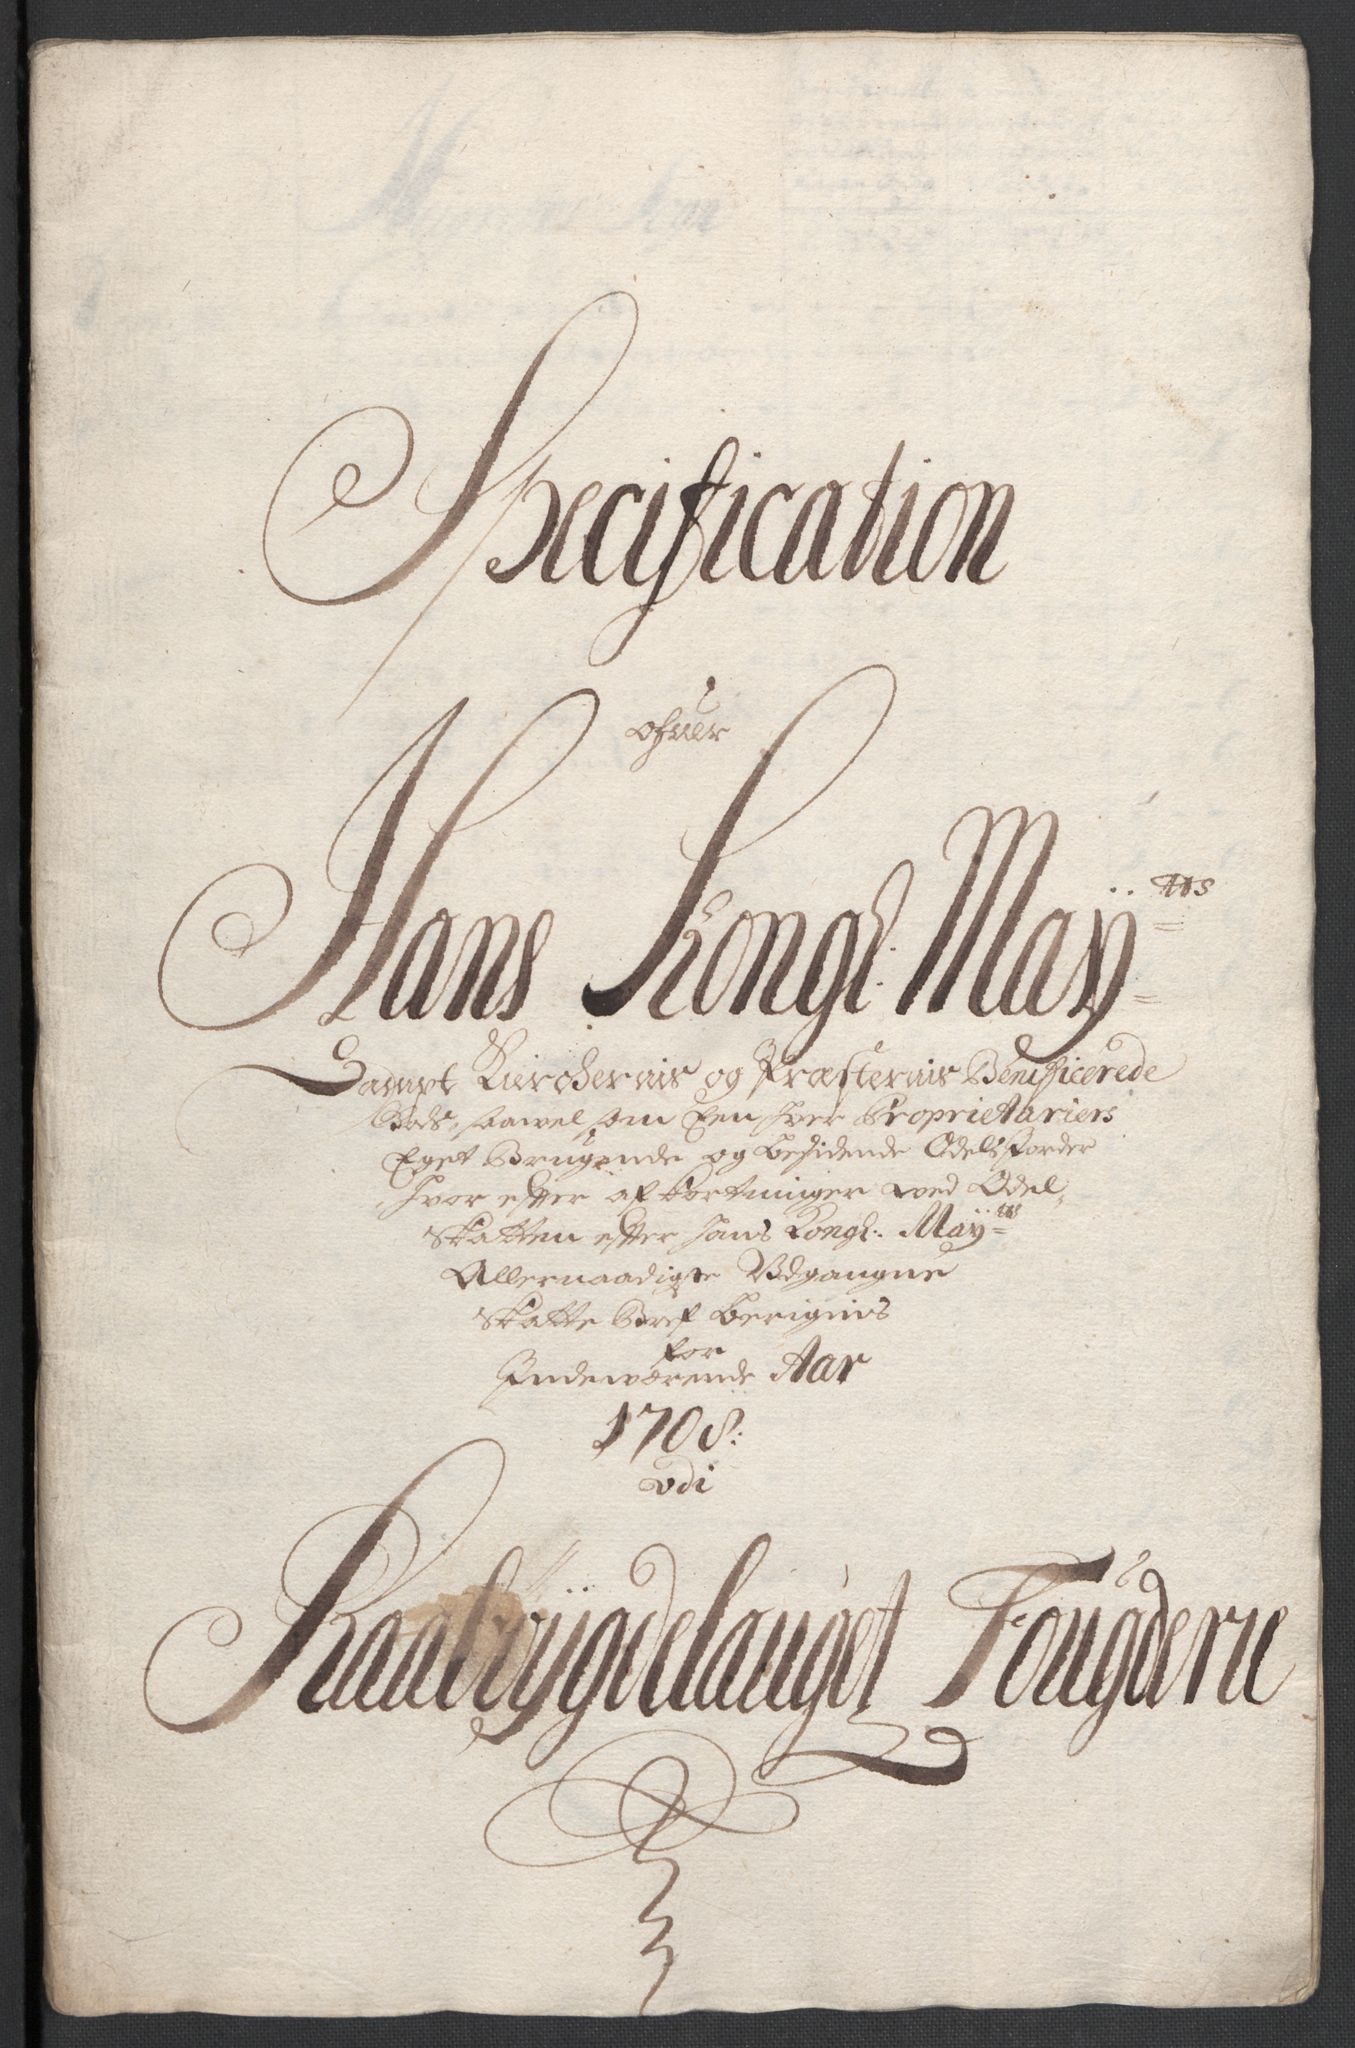 Specification
ofuer
Hans Kongl: Mayts
Sampt Kierchernis og Præsternis Benificerede
Gods, saavel som Een hver Proprietariers
Eget Brugende og besidende Odelsforder
hvor efter afkortninger ved Odel,
Skatten efter hans Kongl: Mayts
Allernaadigste Udgangne
Skatte Bref berignis
for
Indeværende Aar
1708:
udi
Raabÿgdelauget Fougderie